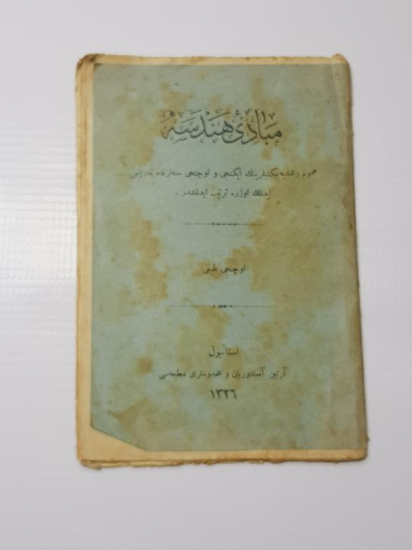 مبادئ هندسه
عموم رشديه مكتبلرينك ايكنجى و اوچنجى سنه لرنده تدريس
ايدلمك اوزره ترتيب ايدلمشدر .
اوچنجى طبعى
استانبول
آرتين آصادوريان و مخدوملرى مطبعه سى
١٣٢٦